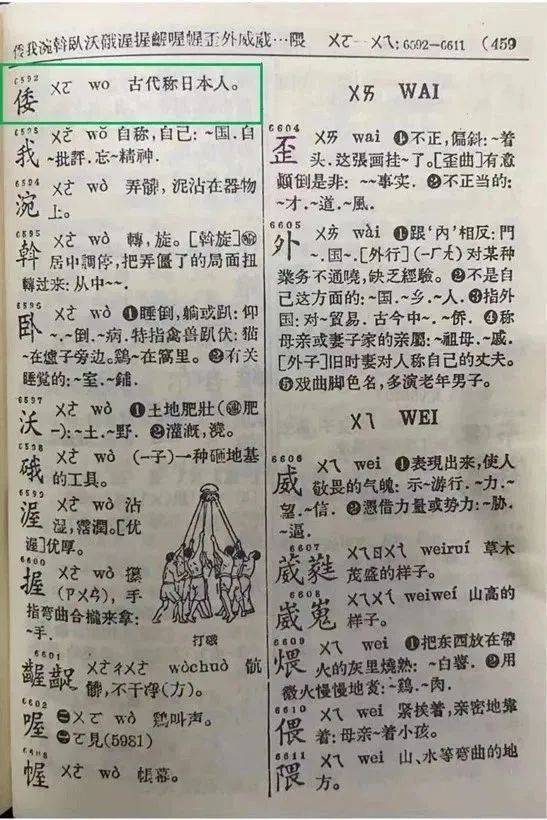 倭我涴斡臥沃硪渥握齷喔幄歪外威葳…隈 ㄨㄛ—ㄨㄟ:6592—6611 (459
6592
倭 ㄨㄛ wo 古代称日本人。
我 ㄨㄛˇ wǒ 自称,自己:~国.自
~批評.忘~精神.
6594
涴 ㄨㄛˋ wò 弄髒,泥沾在器物
上。
6595
斡 ㄨㄛˋ wò 轉,旋。[斡旋]
居中調停,把弄僵了的局面扭
轉过来:从中~~.
6596
卧 ㄨㄛˋ wò ❶睡倒,躺或趴:仰
~.~倒.~病.特指禽兽趴伏:猫
~在爐子旁边.鷄~在窩里。❷有关
睡觉的:~室.~鋪.
6597
沃 ㄨㄛˋ wò ❶土地肥壯(肥
—):~土.~野.❷灌漑,澆。
6598
硪 ㄨㄛˋ wò (—子)一种砸地基
的工具。
6599
渥 ㄨㄛˋ wò 沾
湿,霑潤。[优
渥]优厚。
6600
握 ㄨㄛˋ wò 攥
(ㄗㄨㄢˋ),手
指弯曲合攏来拿:
~手.
打硪
6601
齷齪 ㄨㄛˋㄔㄨㄛˋ wòchuò 骯
髒,不干净(方)。
6602
喔 ㄨㄛ wo 鷄叫声。
ㄛ見(5981)
幄 ㄨㄛˋ wò 帳幕。
ㄨㄞ WAI
6604
歪 ㄨㄞ wai ❶不正,偏斜:~着
头.这張画挂~了。[歪曲]有意
顛倒是非:~~事实.❷不正当的:
~才.~道.~風.
6605
外 ㄨㄞˋ wài ❶跟‘内’相反:門
~.国~.[外行](—ㄏㄤˊ)对某种
業务不通曉,缺乏經驗。❷不是自
己这方面的:~国.~乡.~人.❸指外
国:对~貿易.古今中~.~侨.❹称
母亲或妻子家的亲屬:~祖母.~戚.
[外子]旧时妻对人称自己的丈夫。
❺戏曲脚色名,多演老年男子。
ㄨㄟ WEI
6606
威 ㄨㄟ wei ❶表現出来,使人
敬畏的气魄:示~游行.~力.~
望.~信.❷憑借力量或势力:~胁.
~逼.
6607
葳蕤 ㄨㄟㄖㄨㄟˊ weiruí 草木
茂盛的样子。
6608
崴嵬 ㄨㄟㄨㄟˊ weiweí 山高的
样子。
6609
煨 ㄨㄟ wei ❶把东西放在帶
火的灰里燒熟:~白薯.❷用
微火慢慢地煮:~鷄.~肉.
6610
偎 ㄨㄟ wei 紧挨着,亲密地靠
着:母亲~着小孩。
6611
隈 ㄨㄟ wei 山、水等弯曲的地
方。